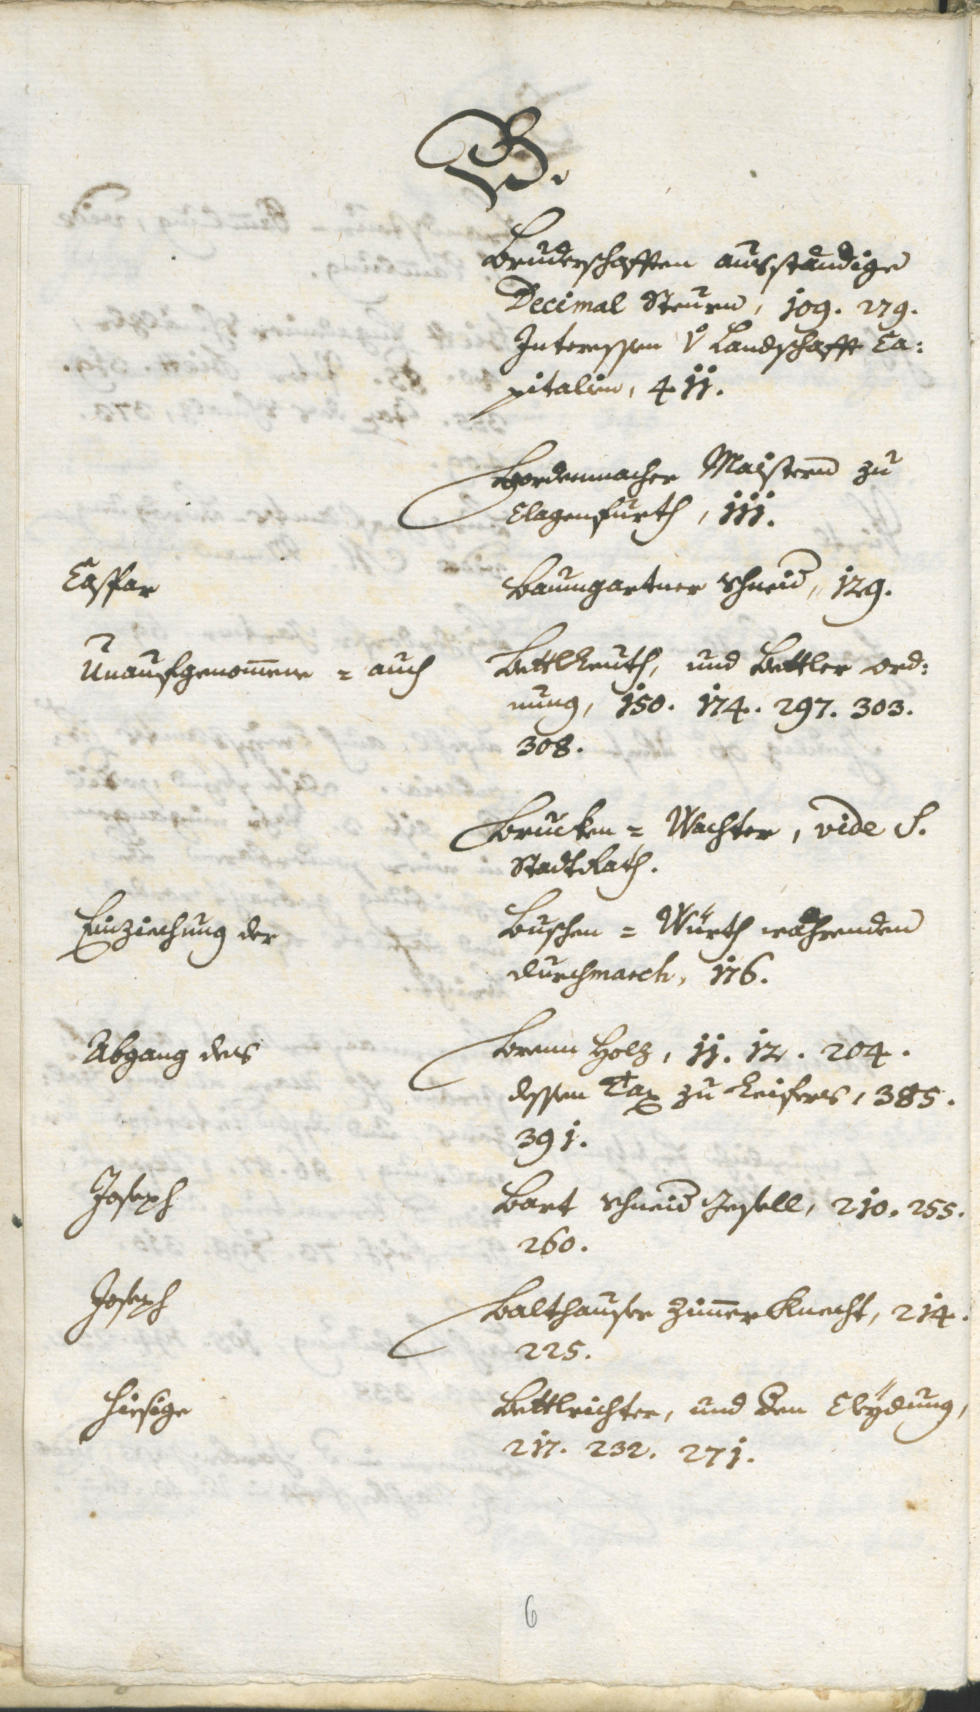 B.
Bruderschafften ausständige
Decimal Steurn, 109. 279.
Interessen v Landschafft Ca:
pitalien, 411.
Bordenmacher Maistern zu
Clagenfurth, 111.
Caspar Baumgartner Schneid, 129.
Unaufgenomene = auch Bettlleuth, und Bettler ord:
nung, 150. 174. 297. 303.
308.
Brucken = Wachter, vide S.
Stadtrath.
Einziechung der Buschen = Würth währenden
durchmarch, 176.
Abgang des Brenn Holz, 11. 12. 204.
dessen Tax zu 385.
391.
Joseph Bart Schneid Gesell, 210. 255.
260.
Joseph Balthauser Zimer Knecht, 214.
225.
Hiesige Bettlrichter, und den Cleydung,
217. 232. 271.
6